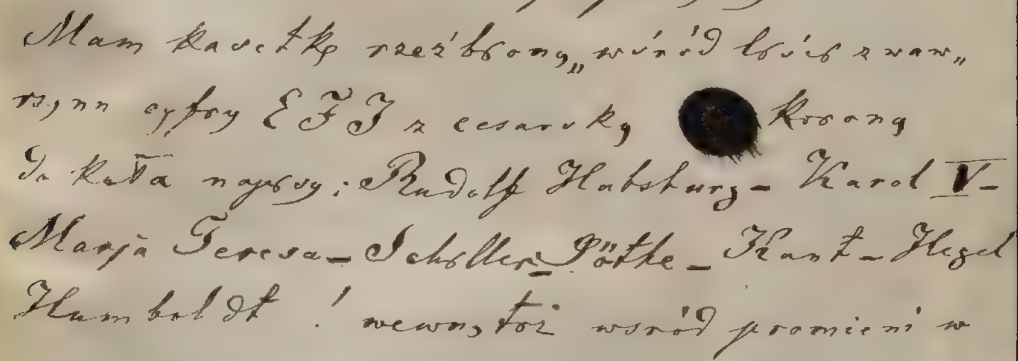 Mam kasetkę rzeźbioną „wśród liści z waw„
rzynu cyfry E F J z cesarską koroną
Do koła napisy: Rudolf Habsburg – Karol V –
Marja Teresa – Schiller – Göthe – Kant – Hegel
Humboldt ! wewnątrz wśród promieni w